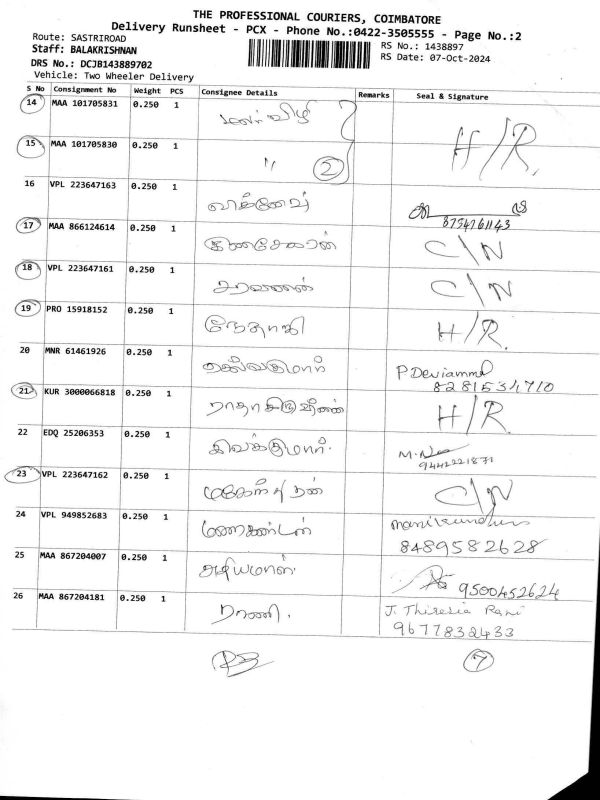 THE PROFESSIONAL COURIERS, COIMBATORE
Delivery Runsheet - PCX - Phone No.:0422-3505555 - Page No.:2
Route: SASTRIROAD
RS No.: 1438897
Staff: BALAKRISHNAN
RS Date: 07-Oct-2024
DRS No.: DCJB143889702
Vehicle: Two Wheeler Delivery
S No Consignment No Weight PCS Consignee Details Remarks Seal & Signature
14 MAA 101705831 0.250 1
15 MAA 101705830 0.250 1 〃 2 H/R.
16 VPL 223647163 0.250 1 8754761143
17 MAA 866124614 0.250 1 குணசேகரன் C\N
18 VPL 223647161 0.250 1 சரவணன் C\N
19 PRO 15918152 0.250 1 நேதாஜி H/R.
20 MNR 61461926 0.250 1 செல்வகுமார் P Deviammal
8281534710
21 KUR 3000066818 0.250 1 H/R.
22 EDQ 25206353 0.250 1 சிவக்குமார். 9442221871
23 VPL 223647162 0.250 1 C\N
24 VPL 949852683 0.250 1 மணிகண்டன்
8489582628
25 MAA 867204007 0.250 1 9500452624
26 MAA 867204181 0.250 1 ராணி. J. Thiresia Rani
9677832433
7